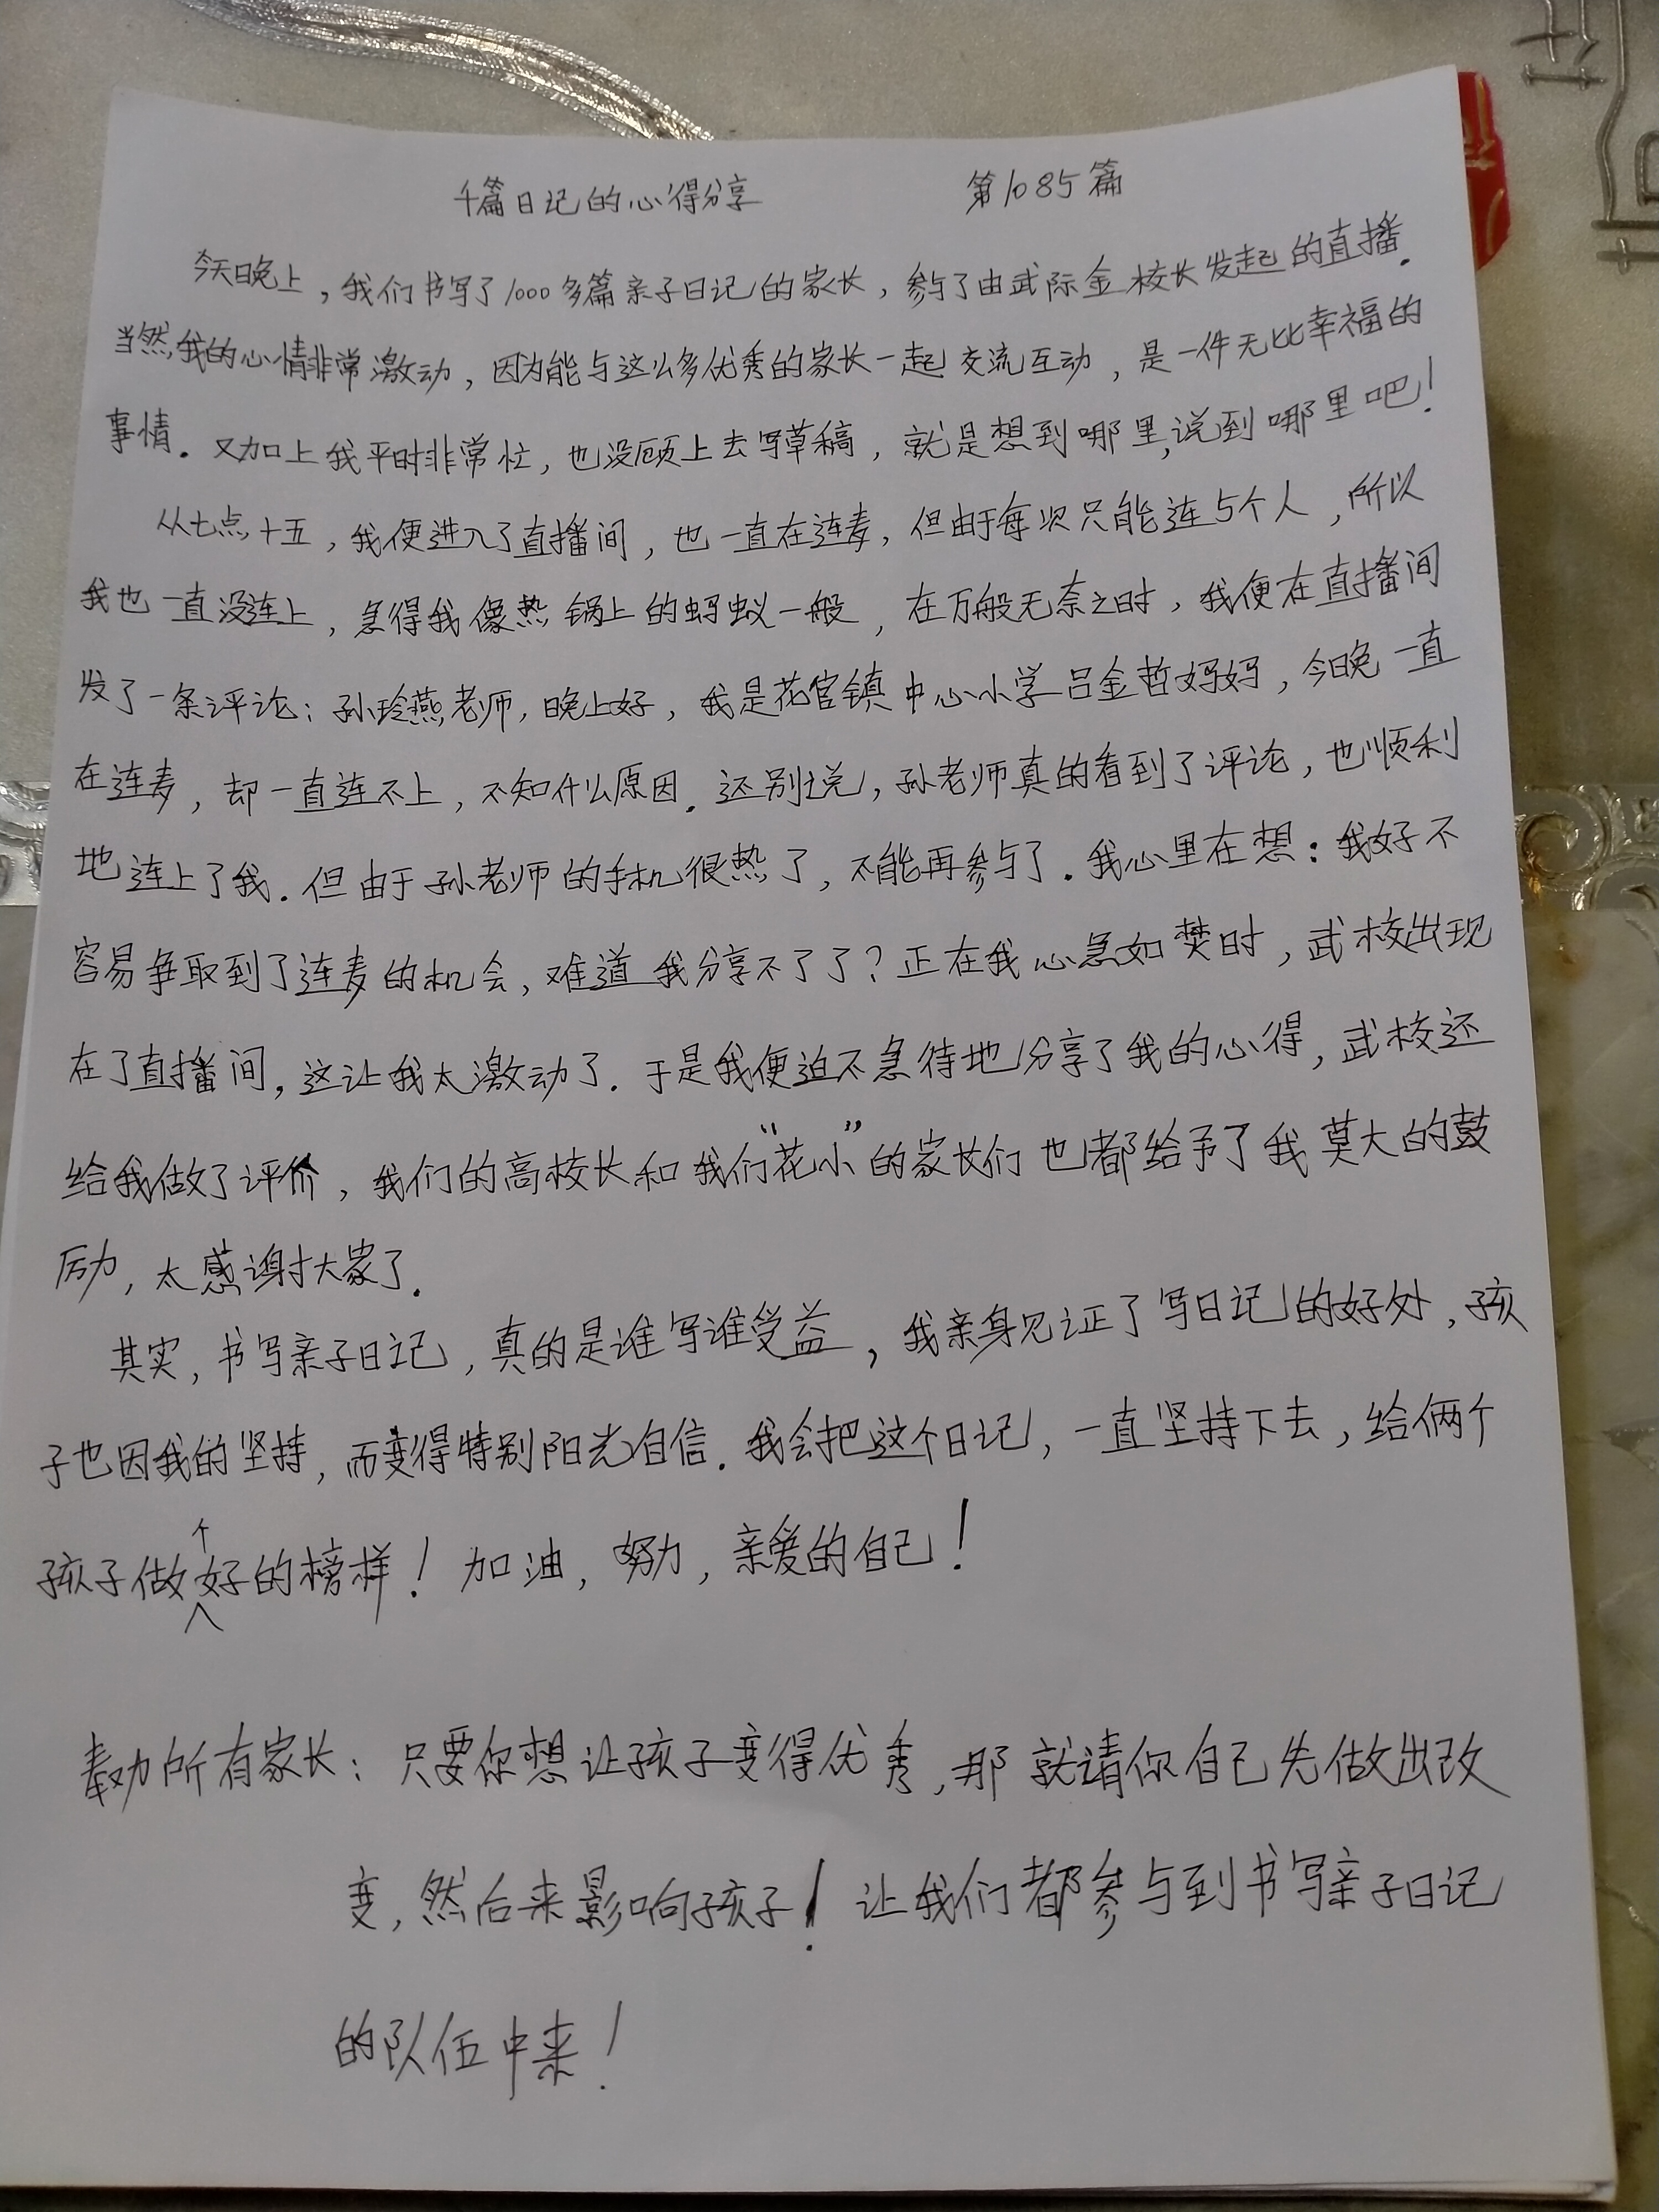 千篇日记的心得分享 第1085篇
今天晚上，我们书写了1000多篇亲子日记的家长，参与了由武际金校长发起的直播.
当然,我的心情非常激动，因为能与这么多优秀的家长一起交流互动，是一件无比幸福的
事情.又加上我平时非常忙，也没顾上去写草稿，就是想到哪里,说到哪里吧！
从七点十五，我便进入了直播间，也一直在连麦，但由于每次只能连5个人，所以
我也一直没连上，急得我像热锅上的蚂蚁一般，在万般无奈之时，我便在直播间
发了一条评论：孙玲燕老师，晚上好，我是花官镇中心小学吕金哲妈妈，今晚一直
在连麦，却一直连不上，不知什么原因.还别说，孙老师真的看到了评论，也顺利
地连上了我.但由于孙老师的手机很热了，不能再参与了.我心里在想：我好不
容易争取到了连麦的机会，难道我分享不了了？正在我心急如焚时，武校出现
在了直播间，这让我太激动了.于是我便迫不急待地分享了我的心得，武校还
给我做了评价，我们的高校长和我们“花小”的家长们也都给予了我莫大的鼓
励，太感谢大家了.
其实，书写亲子日记，真的是谁写谁受益，我亲身见证了写日记的好处，孩
子也因我的坚持，而变得特别阳光自信.我会把这个日记，一直坚持下去，给俩个
孩子做个好的榜样！加油，努力，亲爱的自己！
奉劝所有家长：只要你想让孩子变得优秀，那就请你自己先做出改
变，然后来影响孩子！让我们都参与到书写亲子日记
的队伍中来！